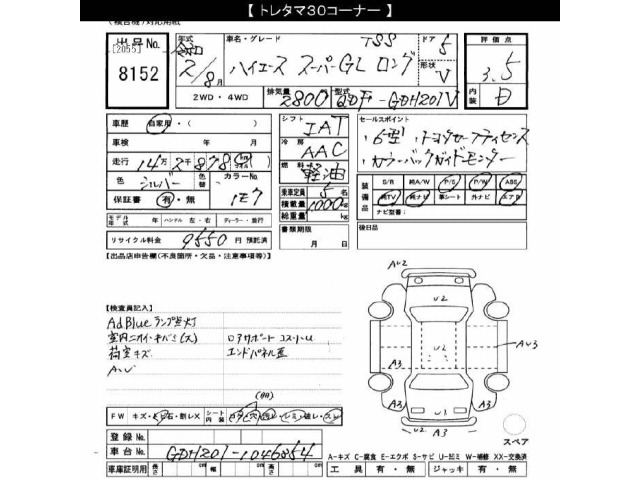 【 トレタマ30コーナー 】
(複合機)対応用紙
出品No.
[2055]
8152
年式
令和
2/8月
2WD・4WD
車名・グレード
TSS
ハイエース スーパーGL ロング
ドア
5
形状
V
排気量
2800
型式
QDF-GDH201V
評価点
3.5
内装
D
車歴 自家用・( )
車検 年 月
走行 14万2千878 km
色 シルバー
色替
カラーNo.
1E7
保証書 有・無
モデル年式 年
ハンドル 左・右
ディーラー・並行
リサイクル料金 9550円 預託済
シフト IAT
冷房 AAC
燃料 軽油
乗車定員 5名
積載量 1000kg
総重量 kg
書類期限
月 日
セールスポイント
・6型・トヨタセーフティセンス
・カラーバックガイドモニター
装備品
S/R 純A/W P/S P/W ABS
純TV 純ナビ 革シート 外ナビ エアB
ナビ型番:
後日品
【出品店申告欄(不良箇所・欠品・注意事項等)】
【検査員記入】
AdBlueランプ点灯
室内ニオイ・キバミ(大)
荷室キズ
A・U
ロアサポート コスリU
エンドパネル歪
FW キズ・トビ石・割レX
シート内装
コゲ・穴・汚レ・シミ・破レ・スレ
登録No.
車台No. GDH201-1046854
車庫証明用
長さ cm 幅 cm 高さ cm
AU2
U2
AU3
U2
A3
A3
U2
U3
A3
A3
スペア
A-キズ C-腐食 E-エクボ S-サビ U-凹ミ W-補修 XX-交換済
工具 有・無 ジャッキ 有・無